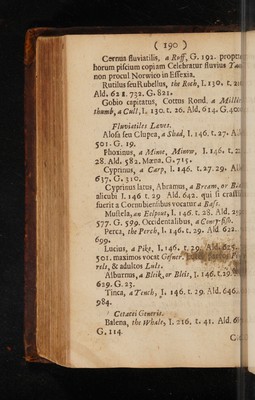 ( 190 )
Cernus fluviatilis, a Ruff, G. 192. propter
horum piscium copiam Celebratur fluvius
non procul Norwico in Essexia.
Rutilus seu Rubellus, the Roch, I. 130. t.
Ald. 621. 732. G. 821.
Gobio capitatus, Cottus Rond. a
thumb, a Cull, I. 130. t. 26. Ald. 614. G. 400
Fluviatiles Laves.
Alosa seu Clupea, a Shad, I. 146. t. 27.
501. G. 19.
Phoxinus, a Minoe, Minow, I. 146. t.
28. Ald. 582. Mæna. G. 715.
Cyprinus, a Carp, I. 146. t. 27. 29.
637. G. 310.
Cyprinus latus, Abramus, a Bream, or
alicubi I. 146 t. 29 Ald. 642. qui si
fuerit a Cornubiensibus vocatur a Base.
Mustela, an Eelpout, I. 146. t. 28. Ald.
577. G. 599. Occidentalibus, a
Perca, the Perch, I. 146. t. 29. Ald 622.
699.
Lucius, a Pike, I. 146. t. 29. Ald.
501. maximos vocat Gesner.
rels, & adultos Luls.
Alburnus, a Bleik, or Bleis, I. 146. t. 29.
629. G. 23.
Tinca, a Tench, I. 146. t. 29. Ald. 646.
984.
Cetacei Generis.
Balena, the Whale, I. 216. t. 41. Ald.
G. 114.